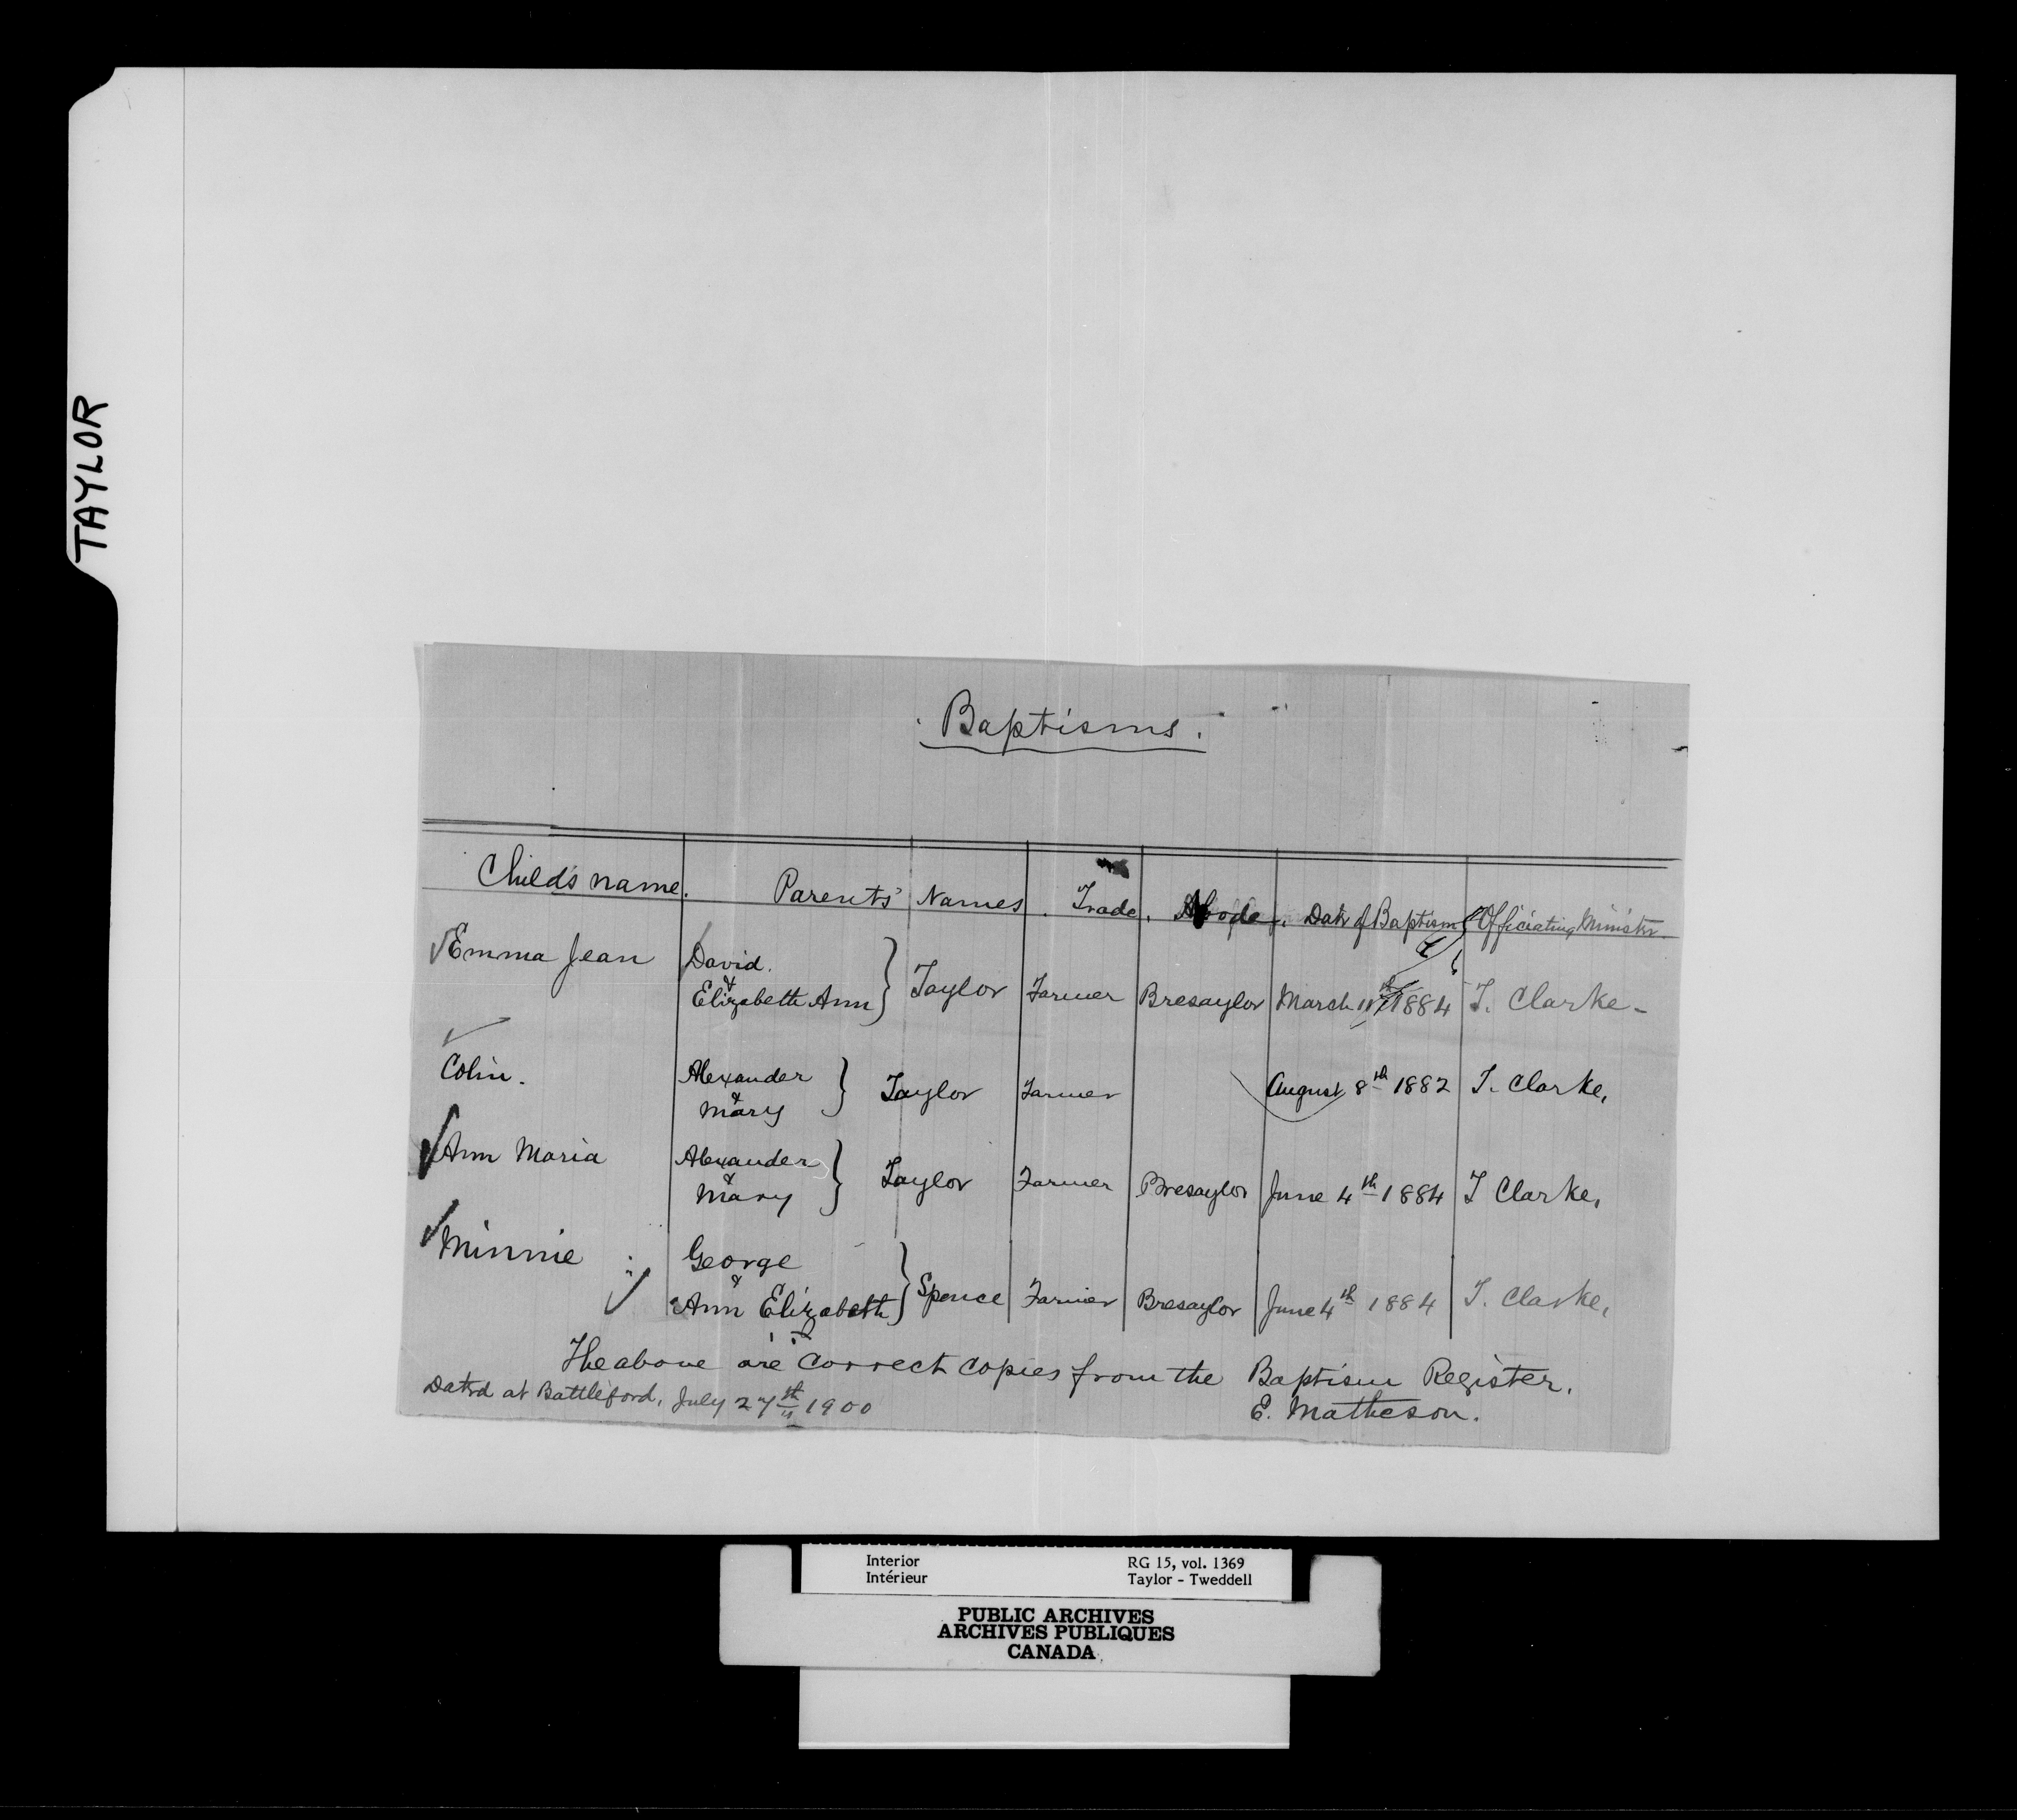 TAYLOR
Baptisms.
Child's name. Parents' Names. Trade. Abode. Date of Baptism Officiating Minister
Emma Jean David & Elizabeth Ann } Taylor Farmer Bresaylor March 11th 1884 T. Clarke -
Colin. Alexander & Mary } Taylor Farmer August 8th 1882 T. Clarke,
Ann Maria Alexander & Mary } Taylor Farmer Bresaylor June 4th 1884 T Clarke,
Minnie George & Ann Elizabeth } Spence Farmer Bresaylor June 4th 1884 T. Clarke,
The above are correct copies from the Baptism Register.
Dated at Battleford, July 27th 1900
E. Matheson.
Interior RG 15, vol. 1369
Intérieur Taylor - Tweddell
PUBLIC ARCHIVES
ARCHIVES PUBLIQUES
CANADA